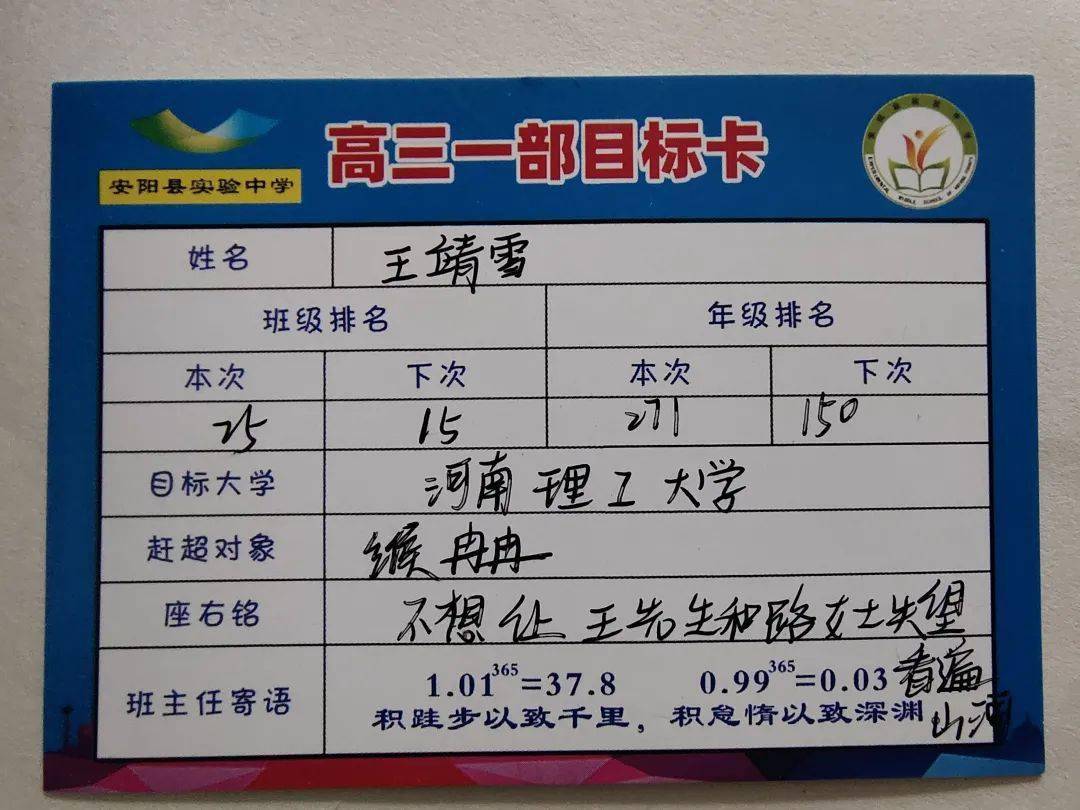 安阳县实验中学
高三一部目标卡
姓名 王靖雪
班级排名 年级排名
本次 下次 本次 下次
25 15 271 150
目标大学 河南理工大学
赶超对象 缑冉冉
座右铭 不想让王先生和路女士失望
看遍
山河
班主任寄语 1.01³⁶⁵=37.8 0.99³⁶⁵=0.03
积跬步以致千里，积怠惰以致深渊